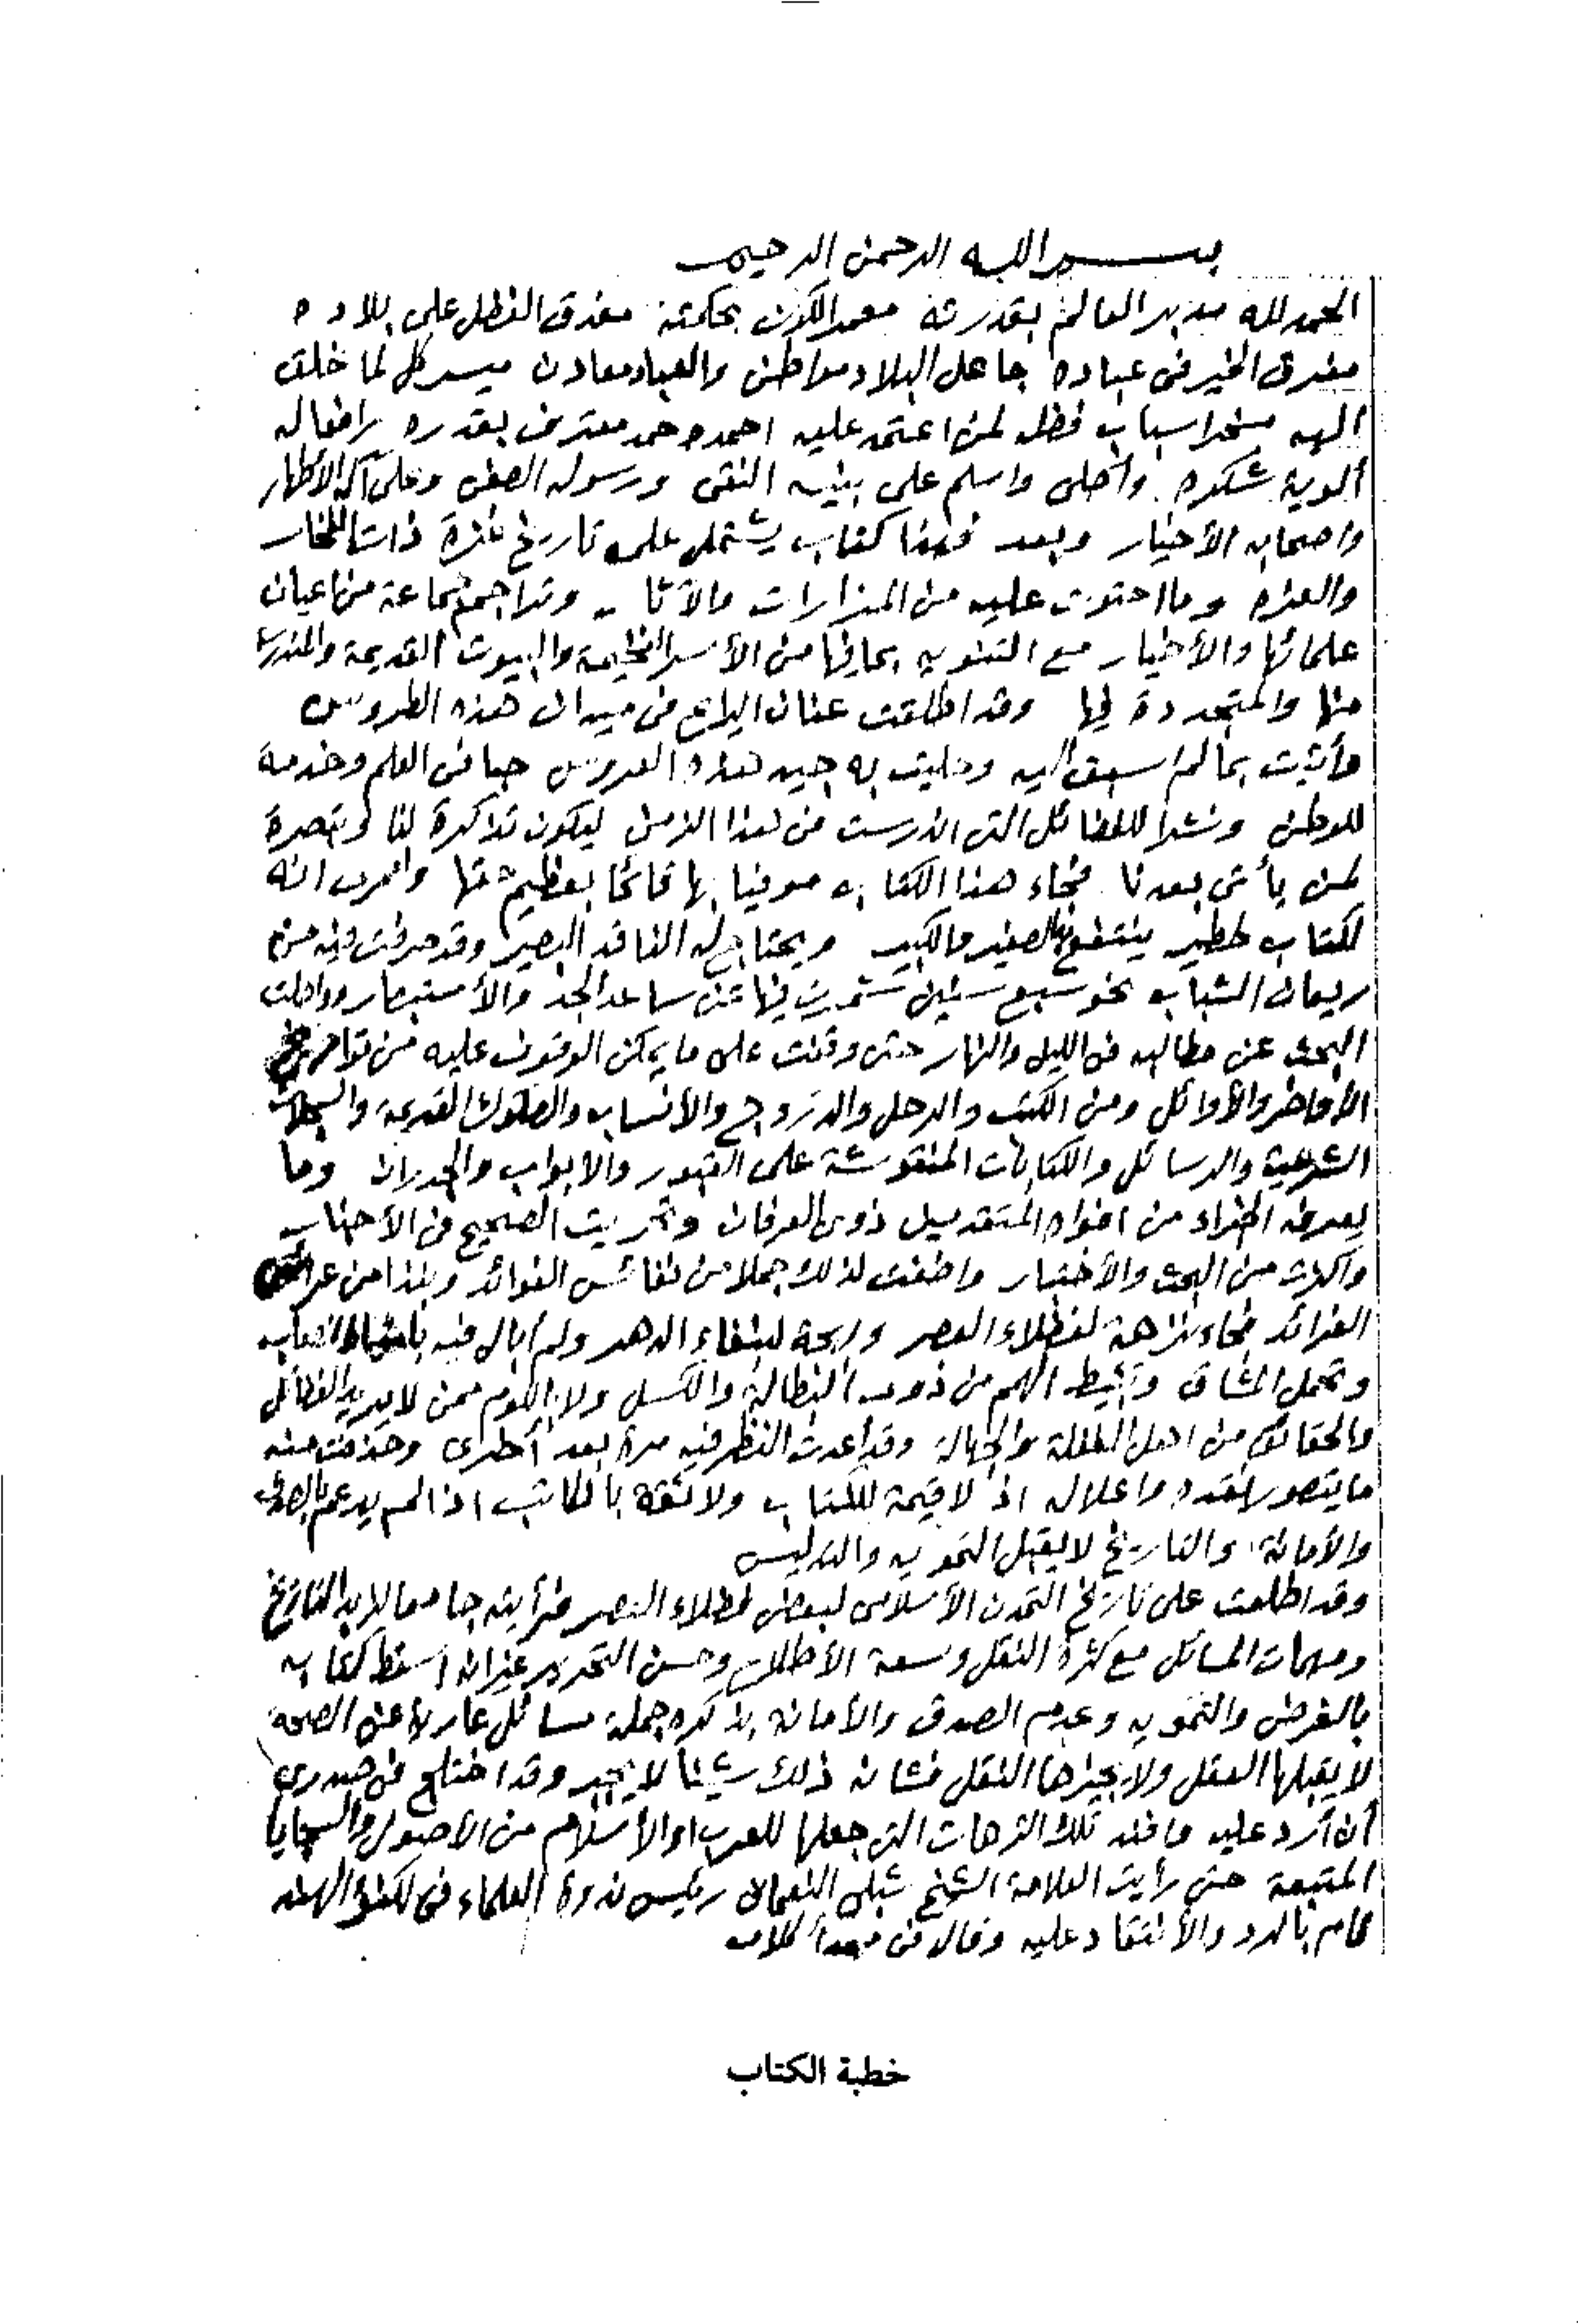 بسم الله الرحمن الرحيم
الحمد لله مدبر العالم بقدرته معمر الكون بحكمته مغدق الفضل على بلاده
مفرق الخير في عباده جاعل البلاد مواطن والعباد معادن ميسر كل لما خلق
اليه مسخر اسباب فضله لمن اعتمد عليه احمده حمد معترف بقدره رافعا له
ألوية شكره. وأصلى واسلم على نبيه النقى ورسوله الصفى وعلى آله الأطهار
واصحابه الأخيار وبعد فهذا كتاب يشتمل على تاريخ غزة ذات الفخار
والعزه وما احتوت عليه من المزارات والآثار وتراجم جماعة من اعيان
علمائها والأخيار مع التنويه بما فيها من الأسر العظيمة والبيوت القديمة والمندرسة
منها والمتجددة لها وقد اطلقت عنان اليراع في ميدان هذه الطروس
فأتيت بما لم اسبق اليه وحليت به جيد هذه العروس حبا في العلم وخدمة
للوطن ونشرا للفضائل التي اندرست من هذا الزمن ليكون تذكرة لنا وتبصرة
لمن يأتى بعدنا. فجاء هذا الكتاب موفيا بها قائما بعظيم حقها ولعمرى انه
لكتاب خطير ينتفع به الصغير والكبير ويحتاج له الناقد البصير وقد صرفت فيه من
ريعان الشباب نحو سبع سنين شمرت فيها عن ساعد الجد والأستبصار وواصلت
البحث عن مطالبه في الليل والنهار حتى وقفت على ما يمكن الوقوف عليه من تواريخ
الأواخر والأوائل ومن الكتب والرحل والدروج والأنساب والصكوك القديمة والسجلات
الشرعية والرسائل والكتابات المنقوشة على القبور والابواب والجدران وما
يعرف الخبراء من افواه المتقدمين ذوى العرفان وتحريت الصحيح من الأخبار
واكثرت من البحث والأختبار واضفت لذلك جملا من نفائس الفوائد ونبذا من عرائس
الفرائد فجاء نزاهة لفضلاء العصر وبهجة لنبغاء الدهر ولم أبال فيه باقتحام الصعاب
وتحمل المشاق وتثبيط الهمم من ذوى البطالة والكسل ولا بلوم ممن لا يدري الفضائل
والحقائق من اهل الضلالة والجهالة وقد أعدت النظر فيه مرة بعد أخرى وحذفت منه
ما يتصور نقده واعلاله اذ لا قيمة للكتاب ولا ثقة بالكاتب اذا لم يدعم بالصدق
والأمانة والتاريخ لا يقبل التمويه والتدليس
وقد اطلعت على تاريخ التمدن الأسلامى لبعض فضلاء العصر فرأيته جامعا لزبد التاريخ
ومهمات المسائل مع كثرة النقل وسعة الأطلاع وحسن التحرير غير انه اسقط كتابه
بالغرض والتمويه وعدم الصدق والأمانة بذكره جملة مسائل عارية عن الصحة
لا يقبلها العقل ولا يجيزها النقل فشانه ذلك شينا لا يجبر وقد اختلج في صدري
أن أرد عليه وافند تلك الترهات التي جعلها للعرب او الأسلام من الأصول والسجايا
المتبعة حتى رأيت العلامة الشيخ شبلى النعمانى رئيس ندوة العلماء في لكنؤ الهند
قام بالرد والأنتقاد عليه وقال في مبدأ كلامه
خطبة الكتاب